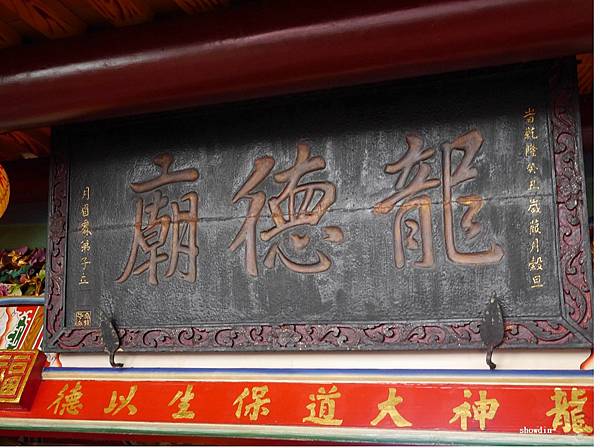 旹乾隆癸丑歲月穀旦
龍德廟
月眉衆弟子立
龍神大道保生以德
showdin